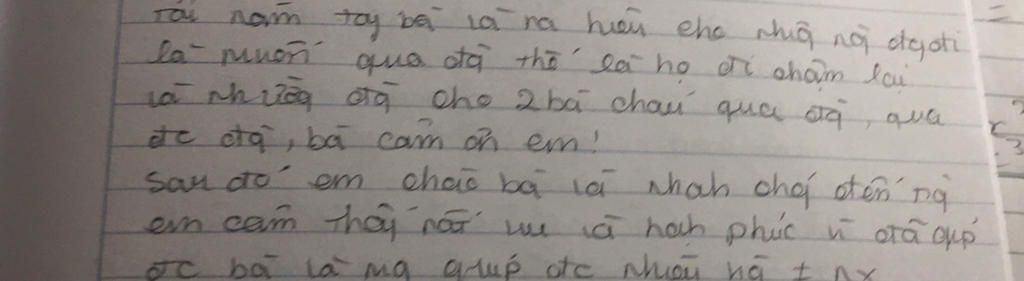 Tôi nắm tay bà và ra hiệu cho những ng đg đi
là muốn qua đg thế là họ đi chậm lại
và nhường đg cho 2 bà cháu qua đg, qua
đc đg, bà cảm ơn em!
Sau đó em chào bà và nhanh chạy đến
em cảm thấy rất vui và hạnh phúc vì đã giúp
đc bà và mg giúp đc nhiều